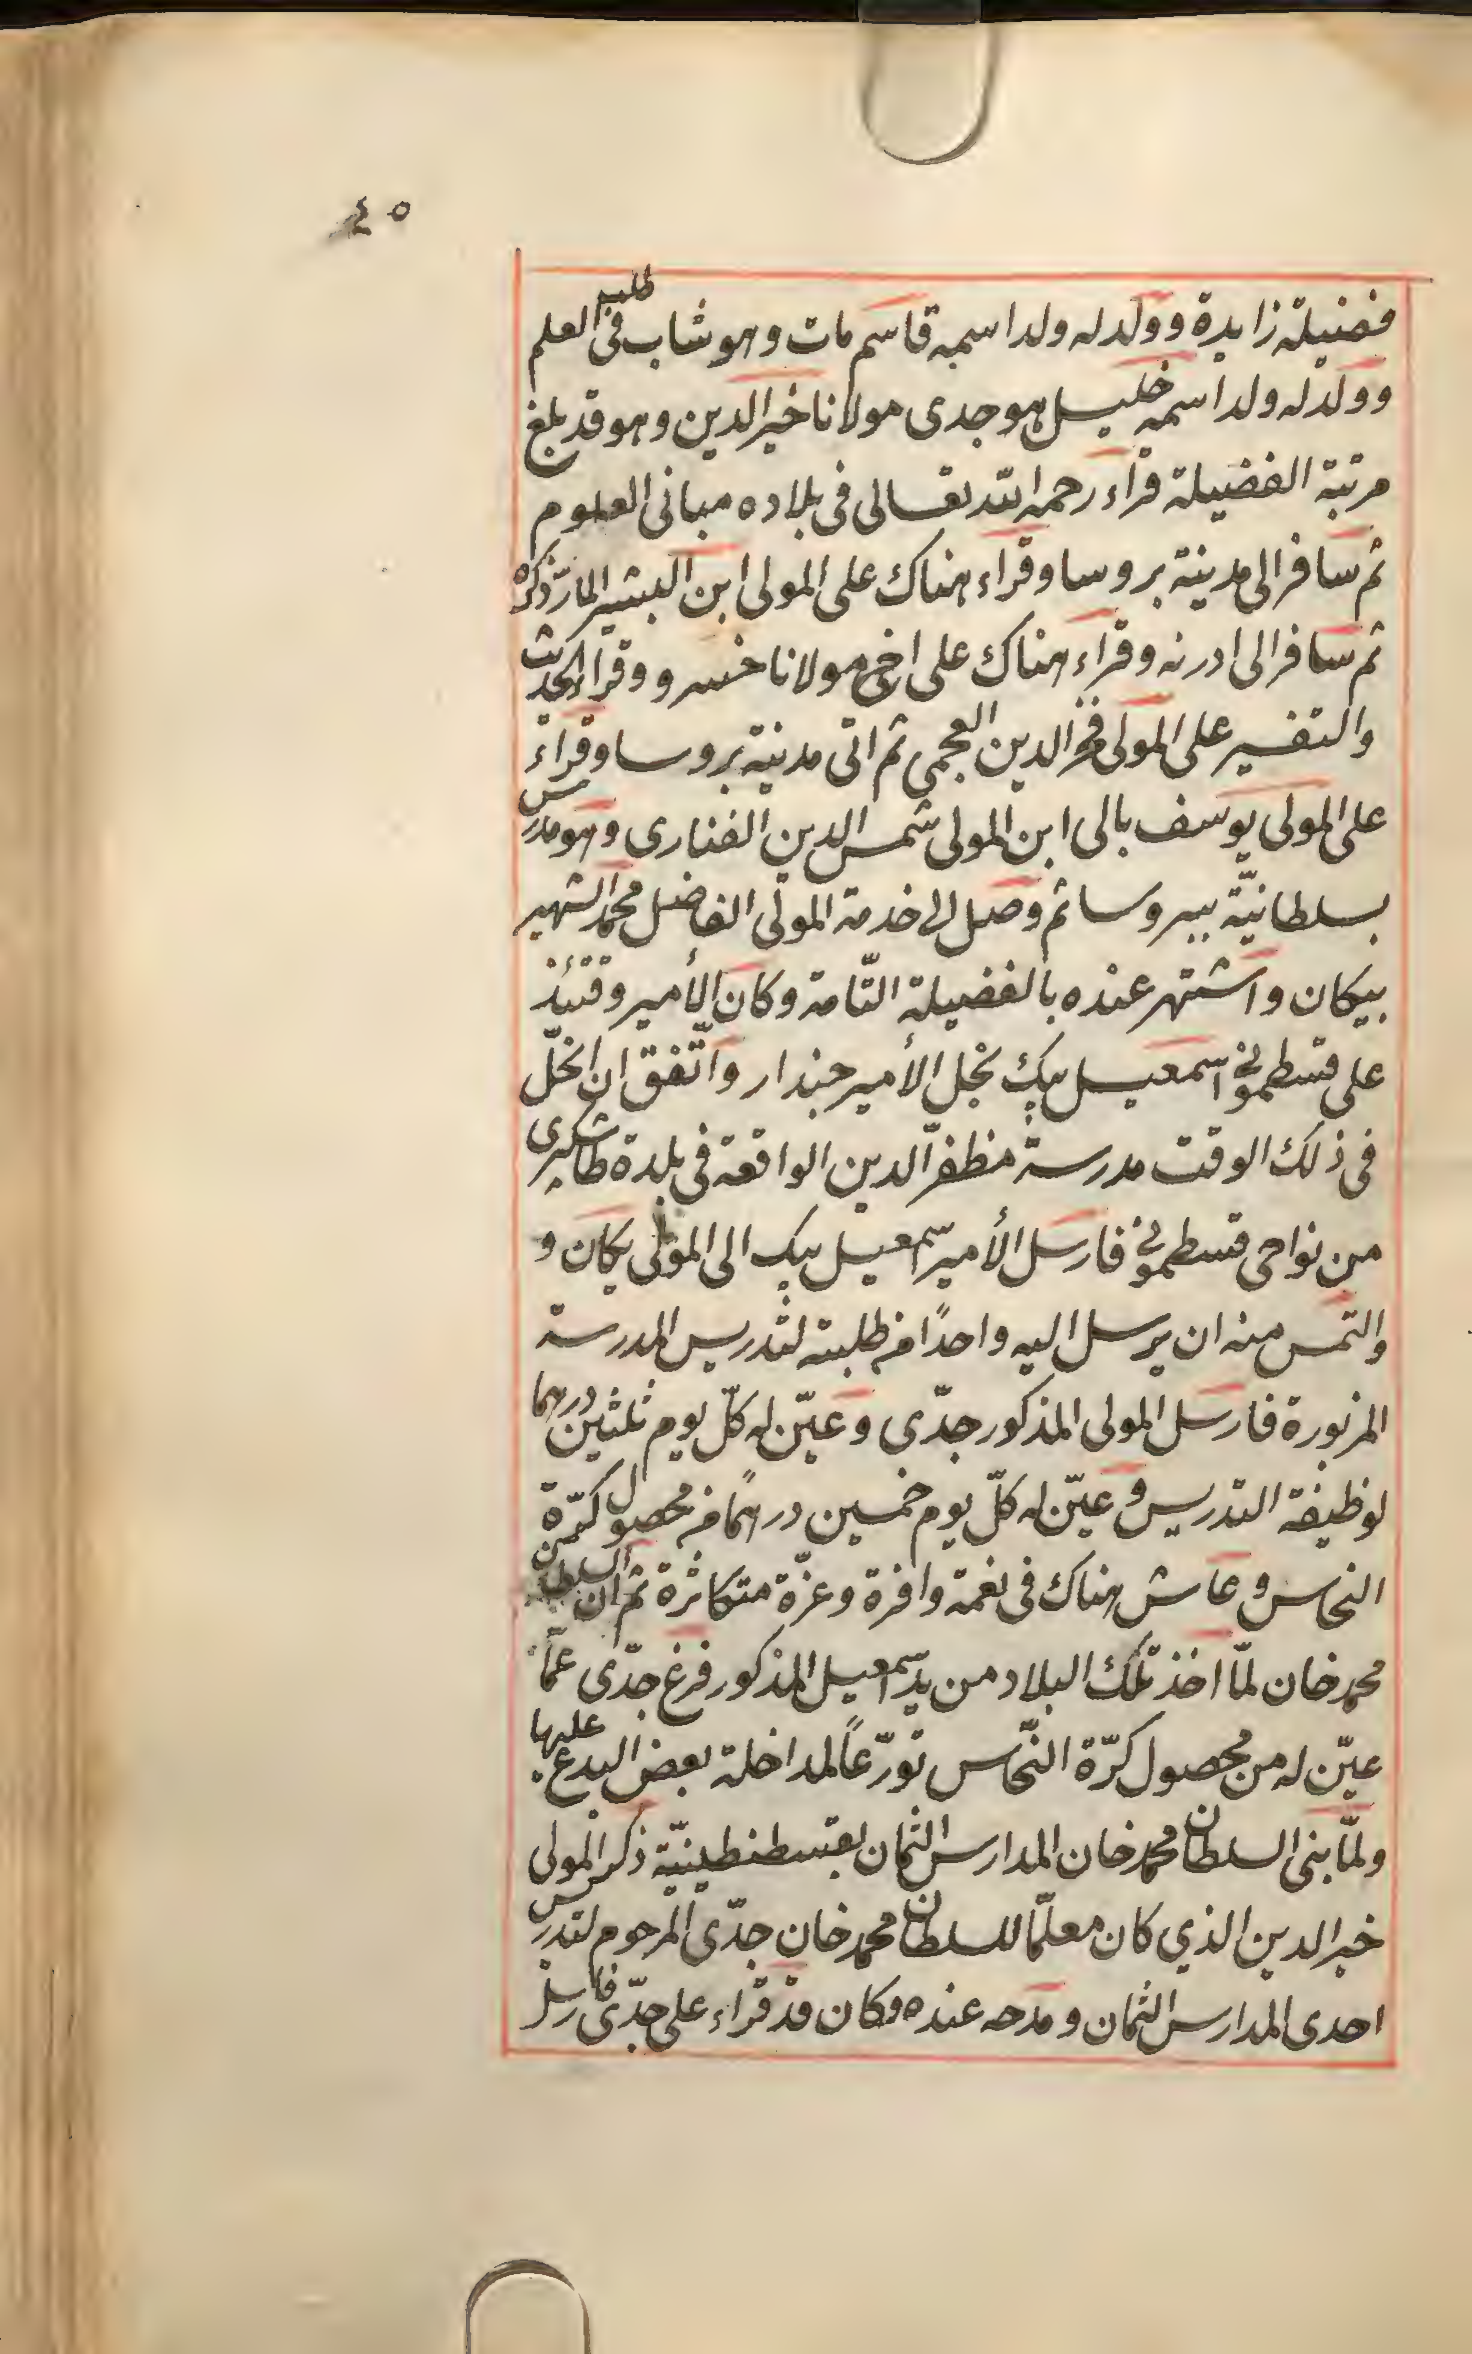 ٤٥
فضيلة زايدة وولد له ولدا اسمه قاسم مات وهو شاب في طلب العلم
وولد له ولدا سمه خليل هو جدى مولانا خير الدين وهو قد بلغ
مرتبة الفضيلة قراء رحمه الله تعالى فى بلاده مبانى العلوم
ثم سافر الى مدينة بروسا وقراء هناك على المولى ابن البشير المارّ ذكره
ثم سافر الى ادرنه وقراء هناك على اخى مولانا خسرو وقراء الحديث
والتفسير على المولى فخر الدين العجمى ثم اتى مدينة بروسا وقراء
على المولى يوسف بالى ابن المولى شمس الدين الفنارى وهو مدرس
بسلطانيّة ببروسا ثم وصل الى خدمة المولى الفاضل محمد الشهير
بيكان واشتهر عنده بالفضيلة التّامة وكان الأمير وقتئذ
على قسطمونى اسمعيل بيك نجل الأمير جندار واتّفق ان انحلّ
فى ذلك الوقت مدرسة مظفر الدين الواقعة فى بلدة طاشكبرى
من نواحى قسطمونى فارسل الأمير اسمعيل بيك الى المولى يكان و
والتمس منه ان يرسل اليه واحدًا من طلبته لتدريس المدرسة
المزبورة فارسل المولى المذكور جدّى وعيّن له كلّ يوم ثلثين درهما
لوظيفة التدريس وعيّن له كلّ يوم خمسين درهمًا من محصول كرّة
النحاس وعاش هناك فى نعمة وافرة وعزّة متكاثرة ثم ان السلطان
محمد خان لمّا اخذ تلك البلاد من يد اسمعيل المذكور فرغ جدّى عمّا
عيّن له من محصول كرّة النّحاس تورّعاً لمداخلة بعض البدع عليها
ولمّا بنى السلطان محمد خان المدارس الثمان بقسطنطينيّة ذكر المولى
خير الدين الذي كان معلّما للسلطان محمد خان جدّى المرحوم لتدريس
احدى المدارس الثمان ومدحه عنده وكان قد قراء على جدّى فارسل